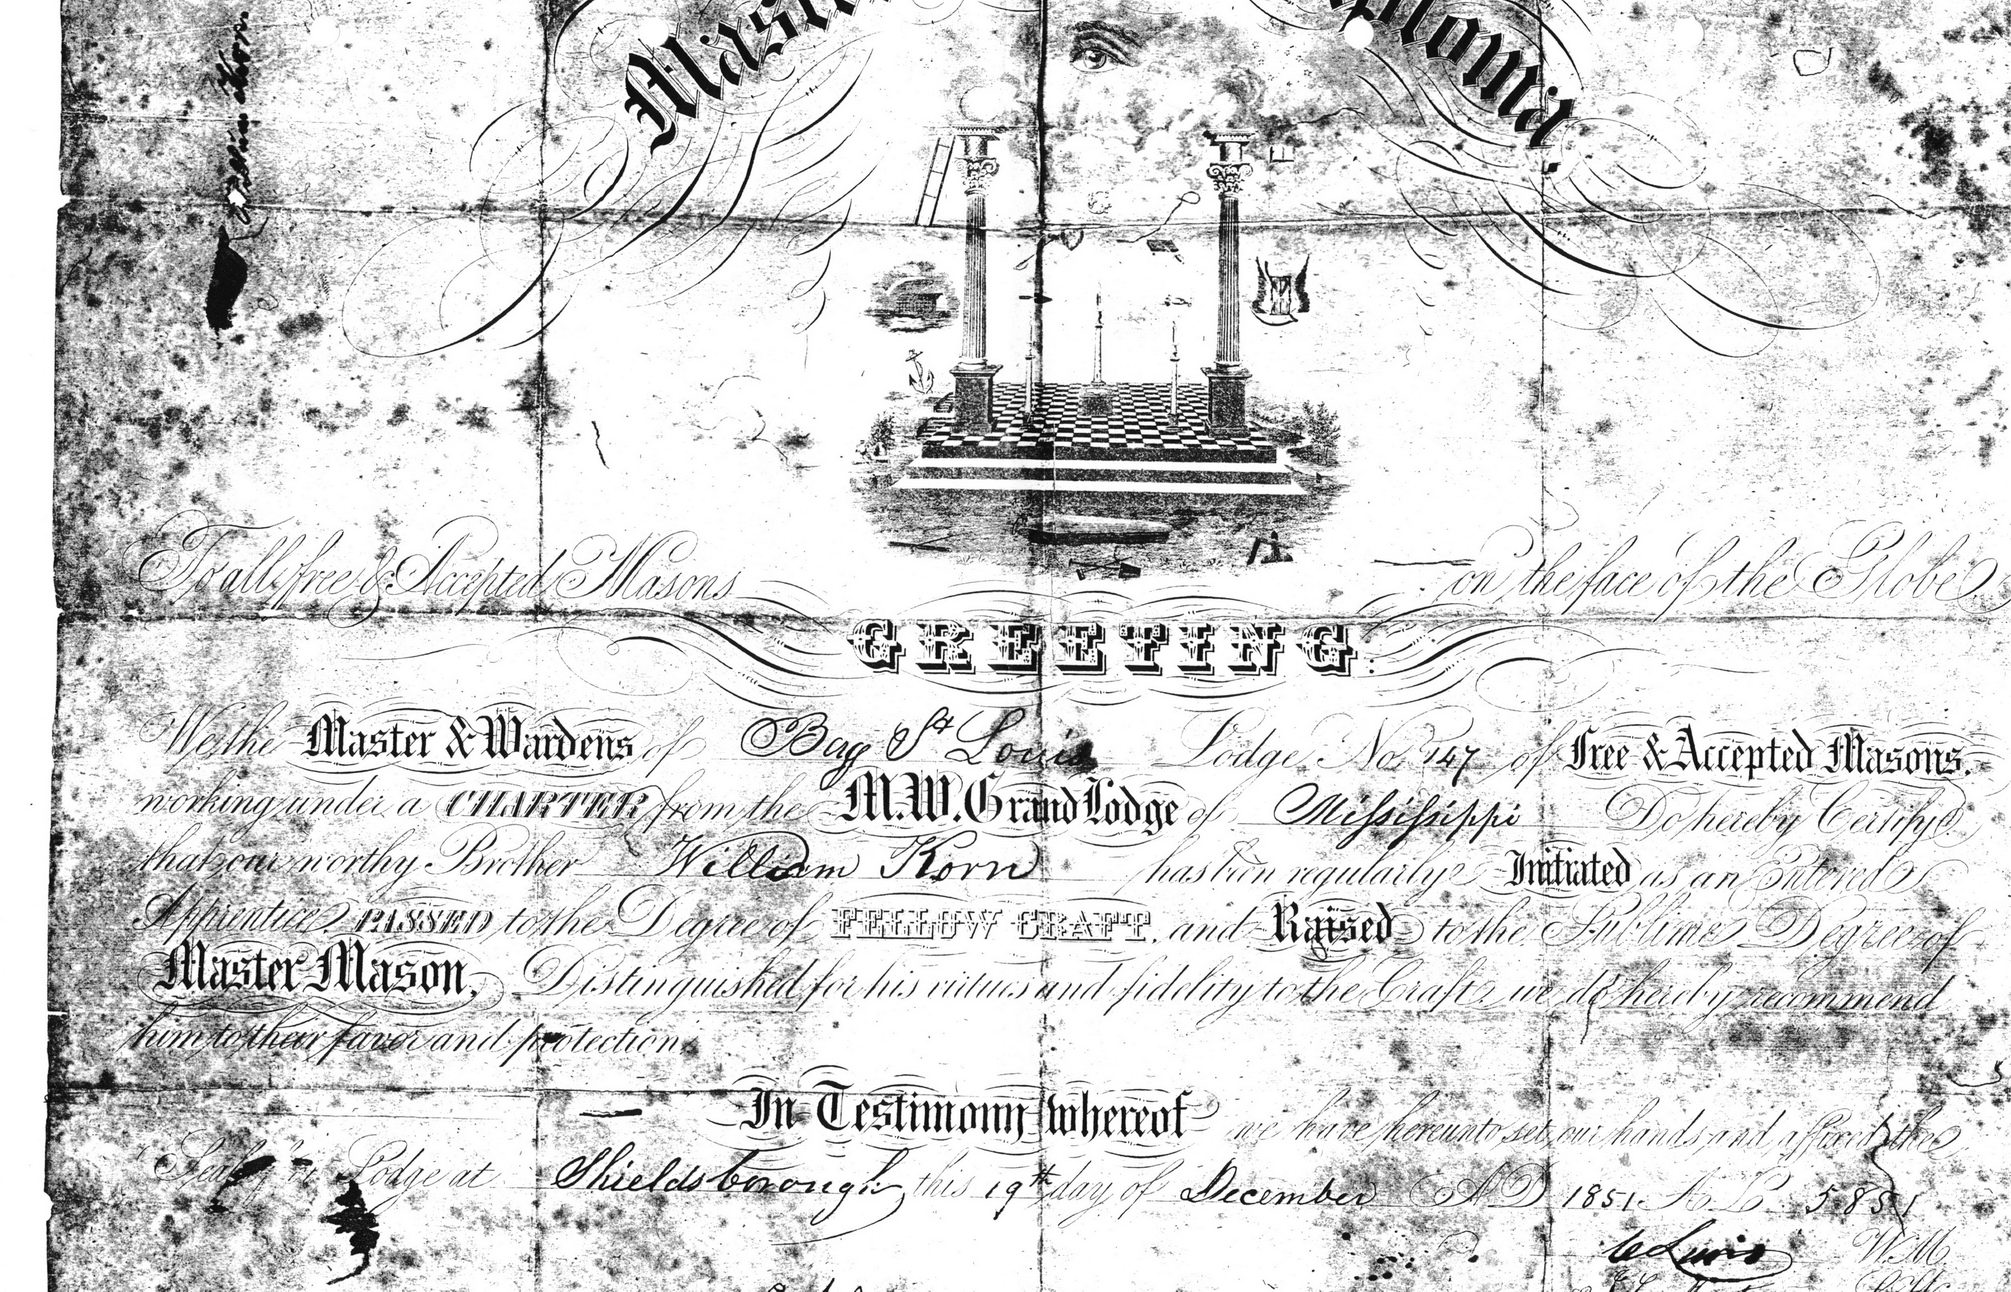 William Korn
To all free & Accepted Masons on the face of the Globe
GREETING:
We the Master & Wardens of Bay St Louis Lodge No. 147 of Free & Accepted Masons,
working under a CHARTER from the M.W. Grand Lodge of Mississippi Do hereby Certify
that our worthy Brother William Korn has been regularly Initiated as an Entered
Apprentice, PASSED to the Degree of FELLOW CRAFT, and Raised to the Sublime Degree of
Master Mason, Distinguished for his virtues and fidelity to the Craft, we do hereby recommend
him to their favor and protection.
In Testimony whereof we have hereunto set our hands and affixed the
Seal of Lodge at Shieldsborough this 19th day of December A D 1851 A L 5851
W.M.